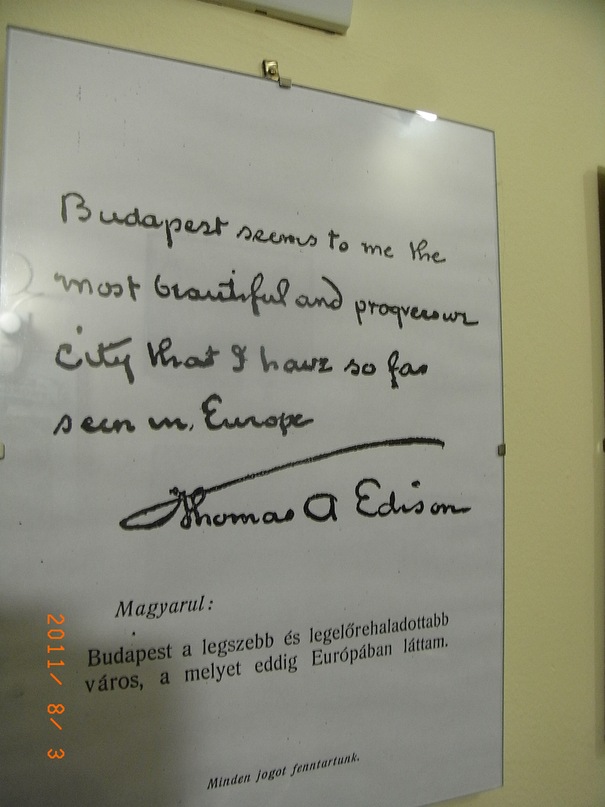 Budapest seems to me the
most beautiful and progressive
City that I have so far
seen in Europe
Thomas A Edison
Magyarul:
Budapest a legszebb és legelőrehaladottabb
város, a melyet eddig Európában láttam.
Minden jogot fenntartunk.
2011/ 8/ 3